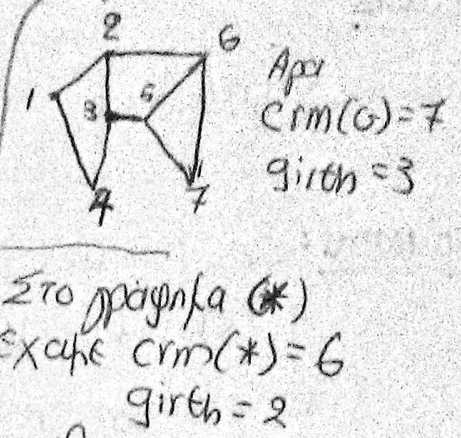 2
6
1
3
5
4
7
Άρα
Crm(G)=7
girth=3
Στο γράφημα (*)
έχαμε crm(*)=6
girth=2